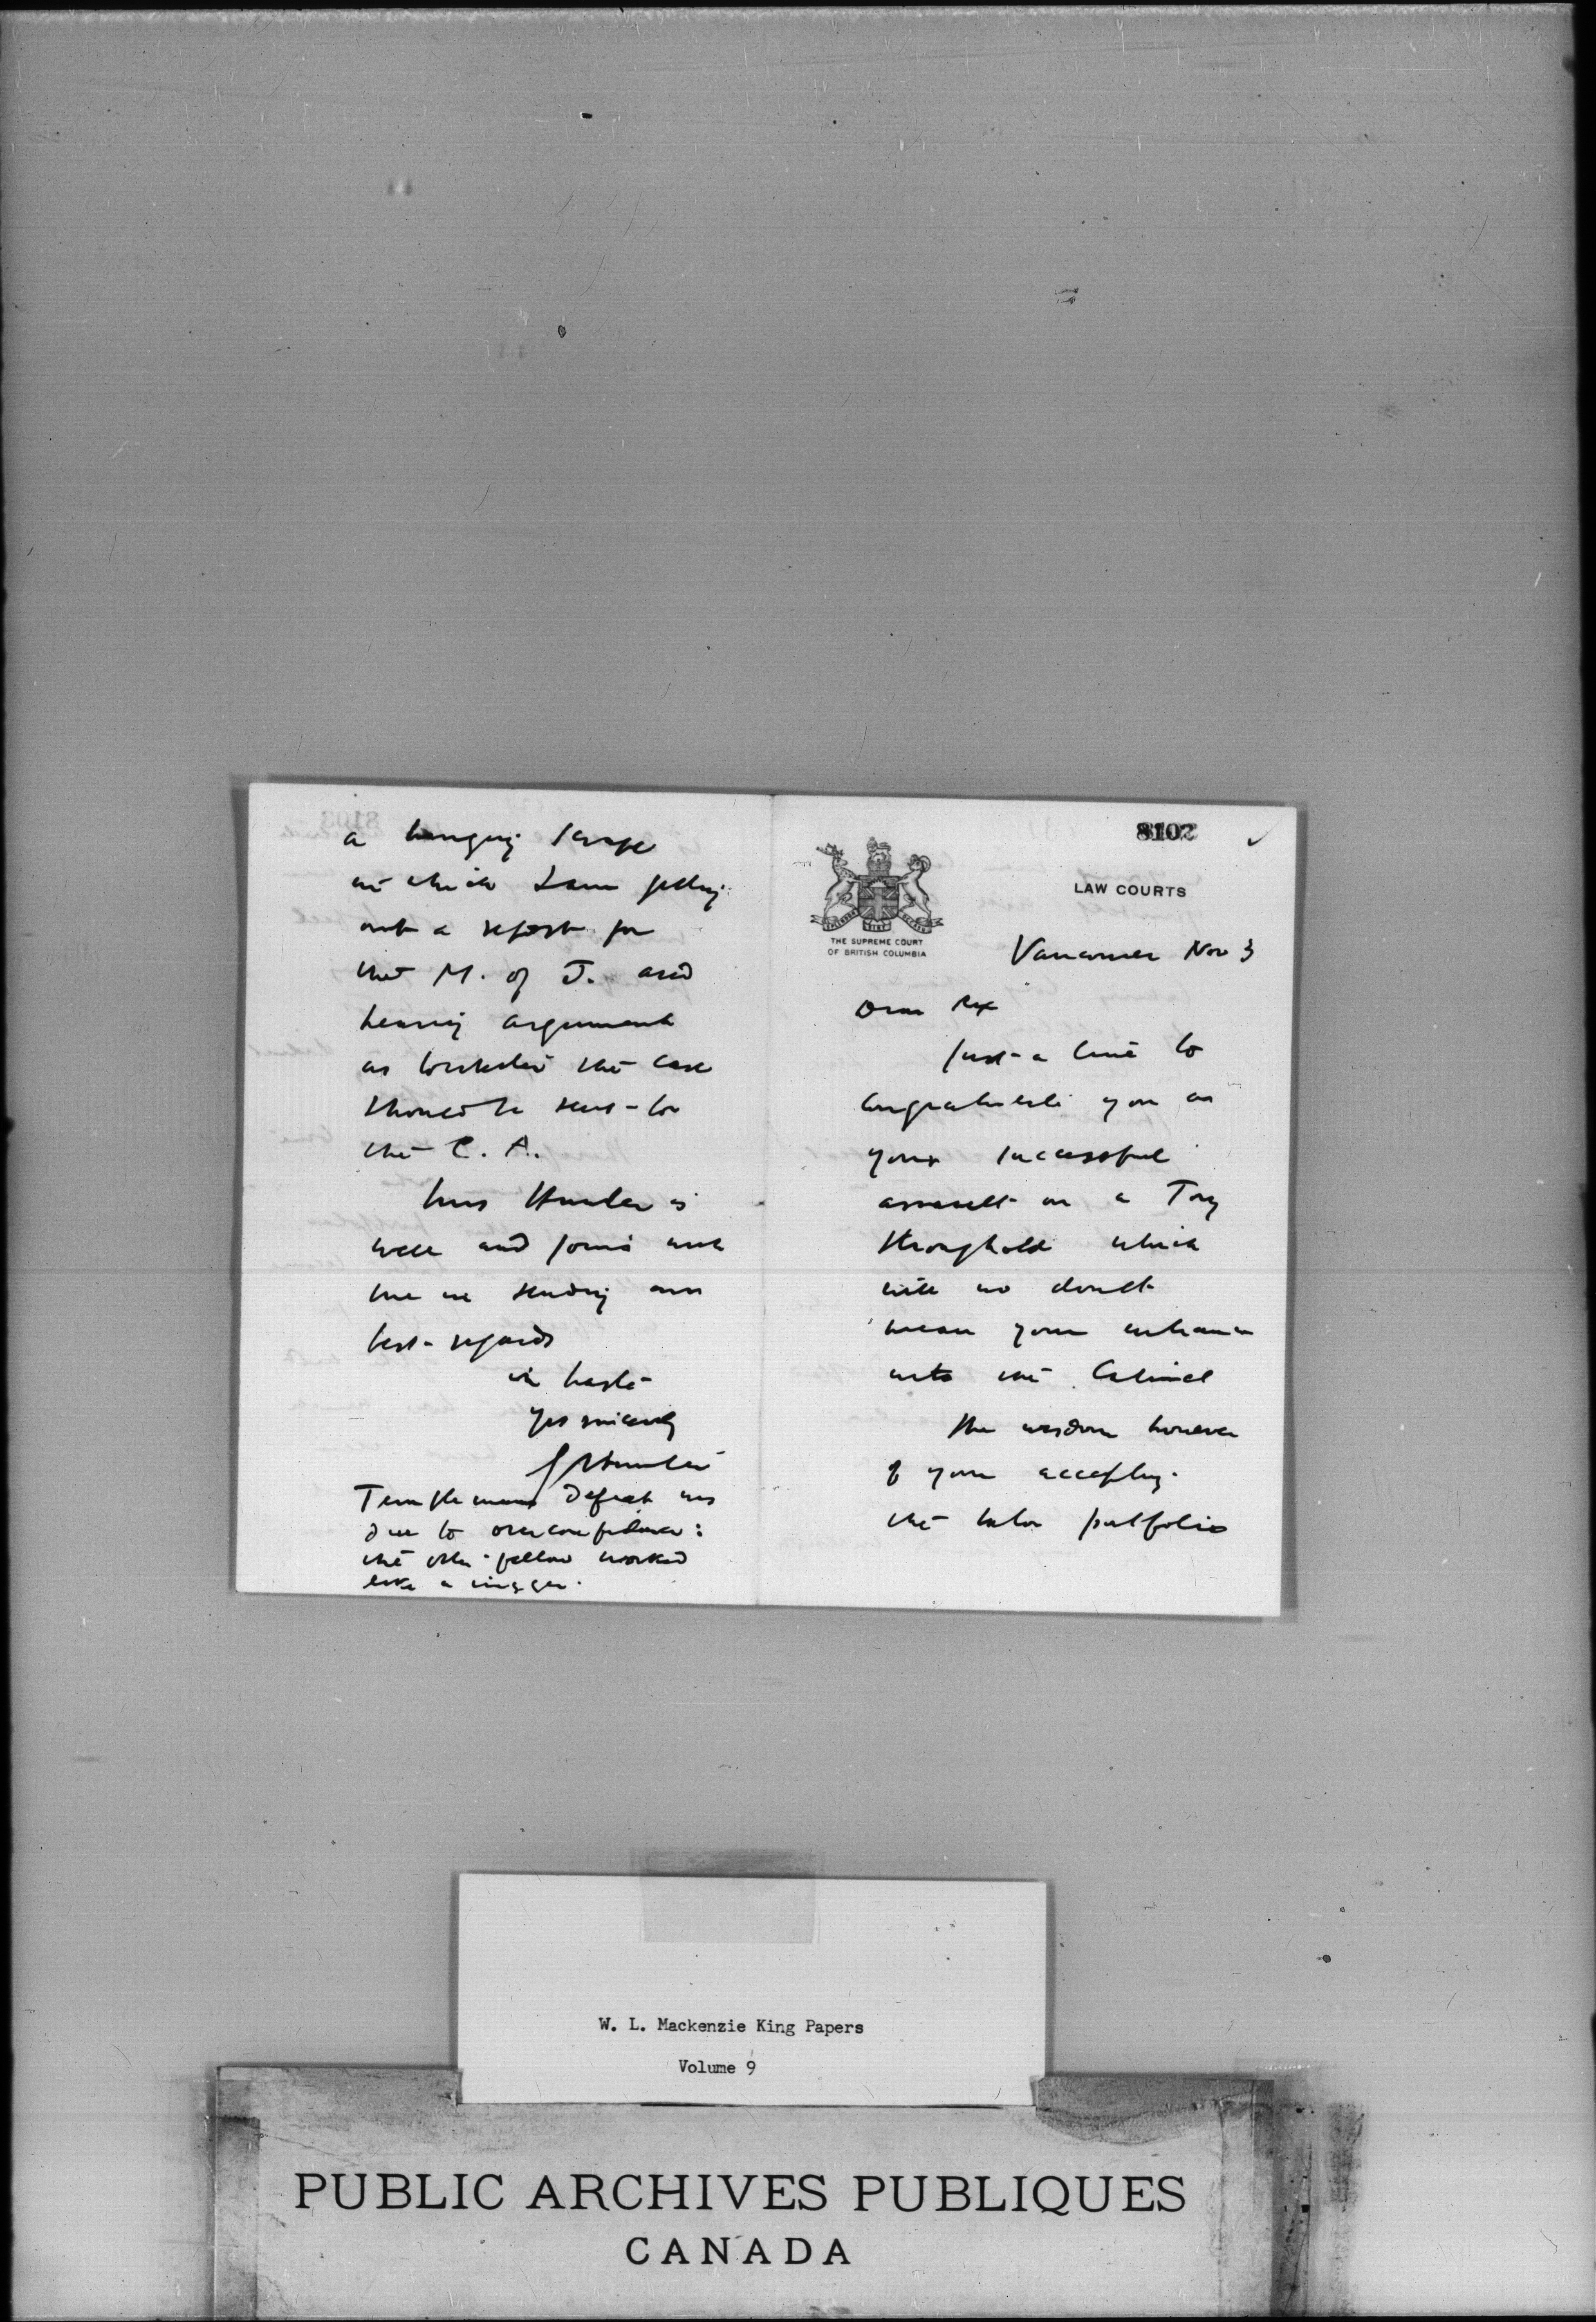 8102
LAW COURTS
THE SUPREME COURT
OF BRITISH COLUMBIA
Vancouver Nov 3
Dear Rex
Just a line to
congratulate you on
your successful
assault on a Tory
stronghold which
will no doubt
mean your entrance
into the Cabinet
The wisdom however
of your accepting
the labor portfolio
a hanging
in which I am getting
out a report for
the M. of J. and
hearing argument
as to whether the case
should be sent to
the C. A.
Mrs Hunter is
well and joins with
me in sending our
best regards
in haste
Yrs sincerely
G Hunter
Templeman's defeat was
due to overconfidence:
the other fellow worked
like a nigger.
W. L. Mackenzie King Papers
Volume 9
PUBLIC ARCHIVES PUBLIQUES
CANADA